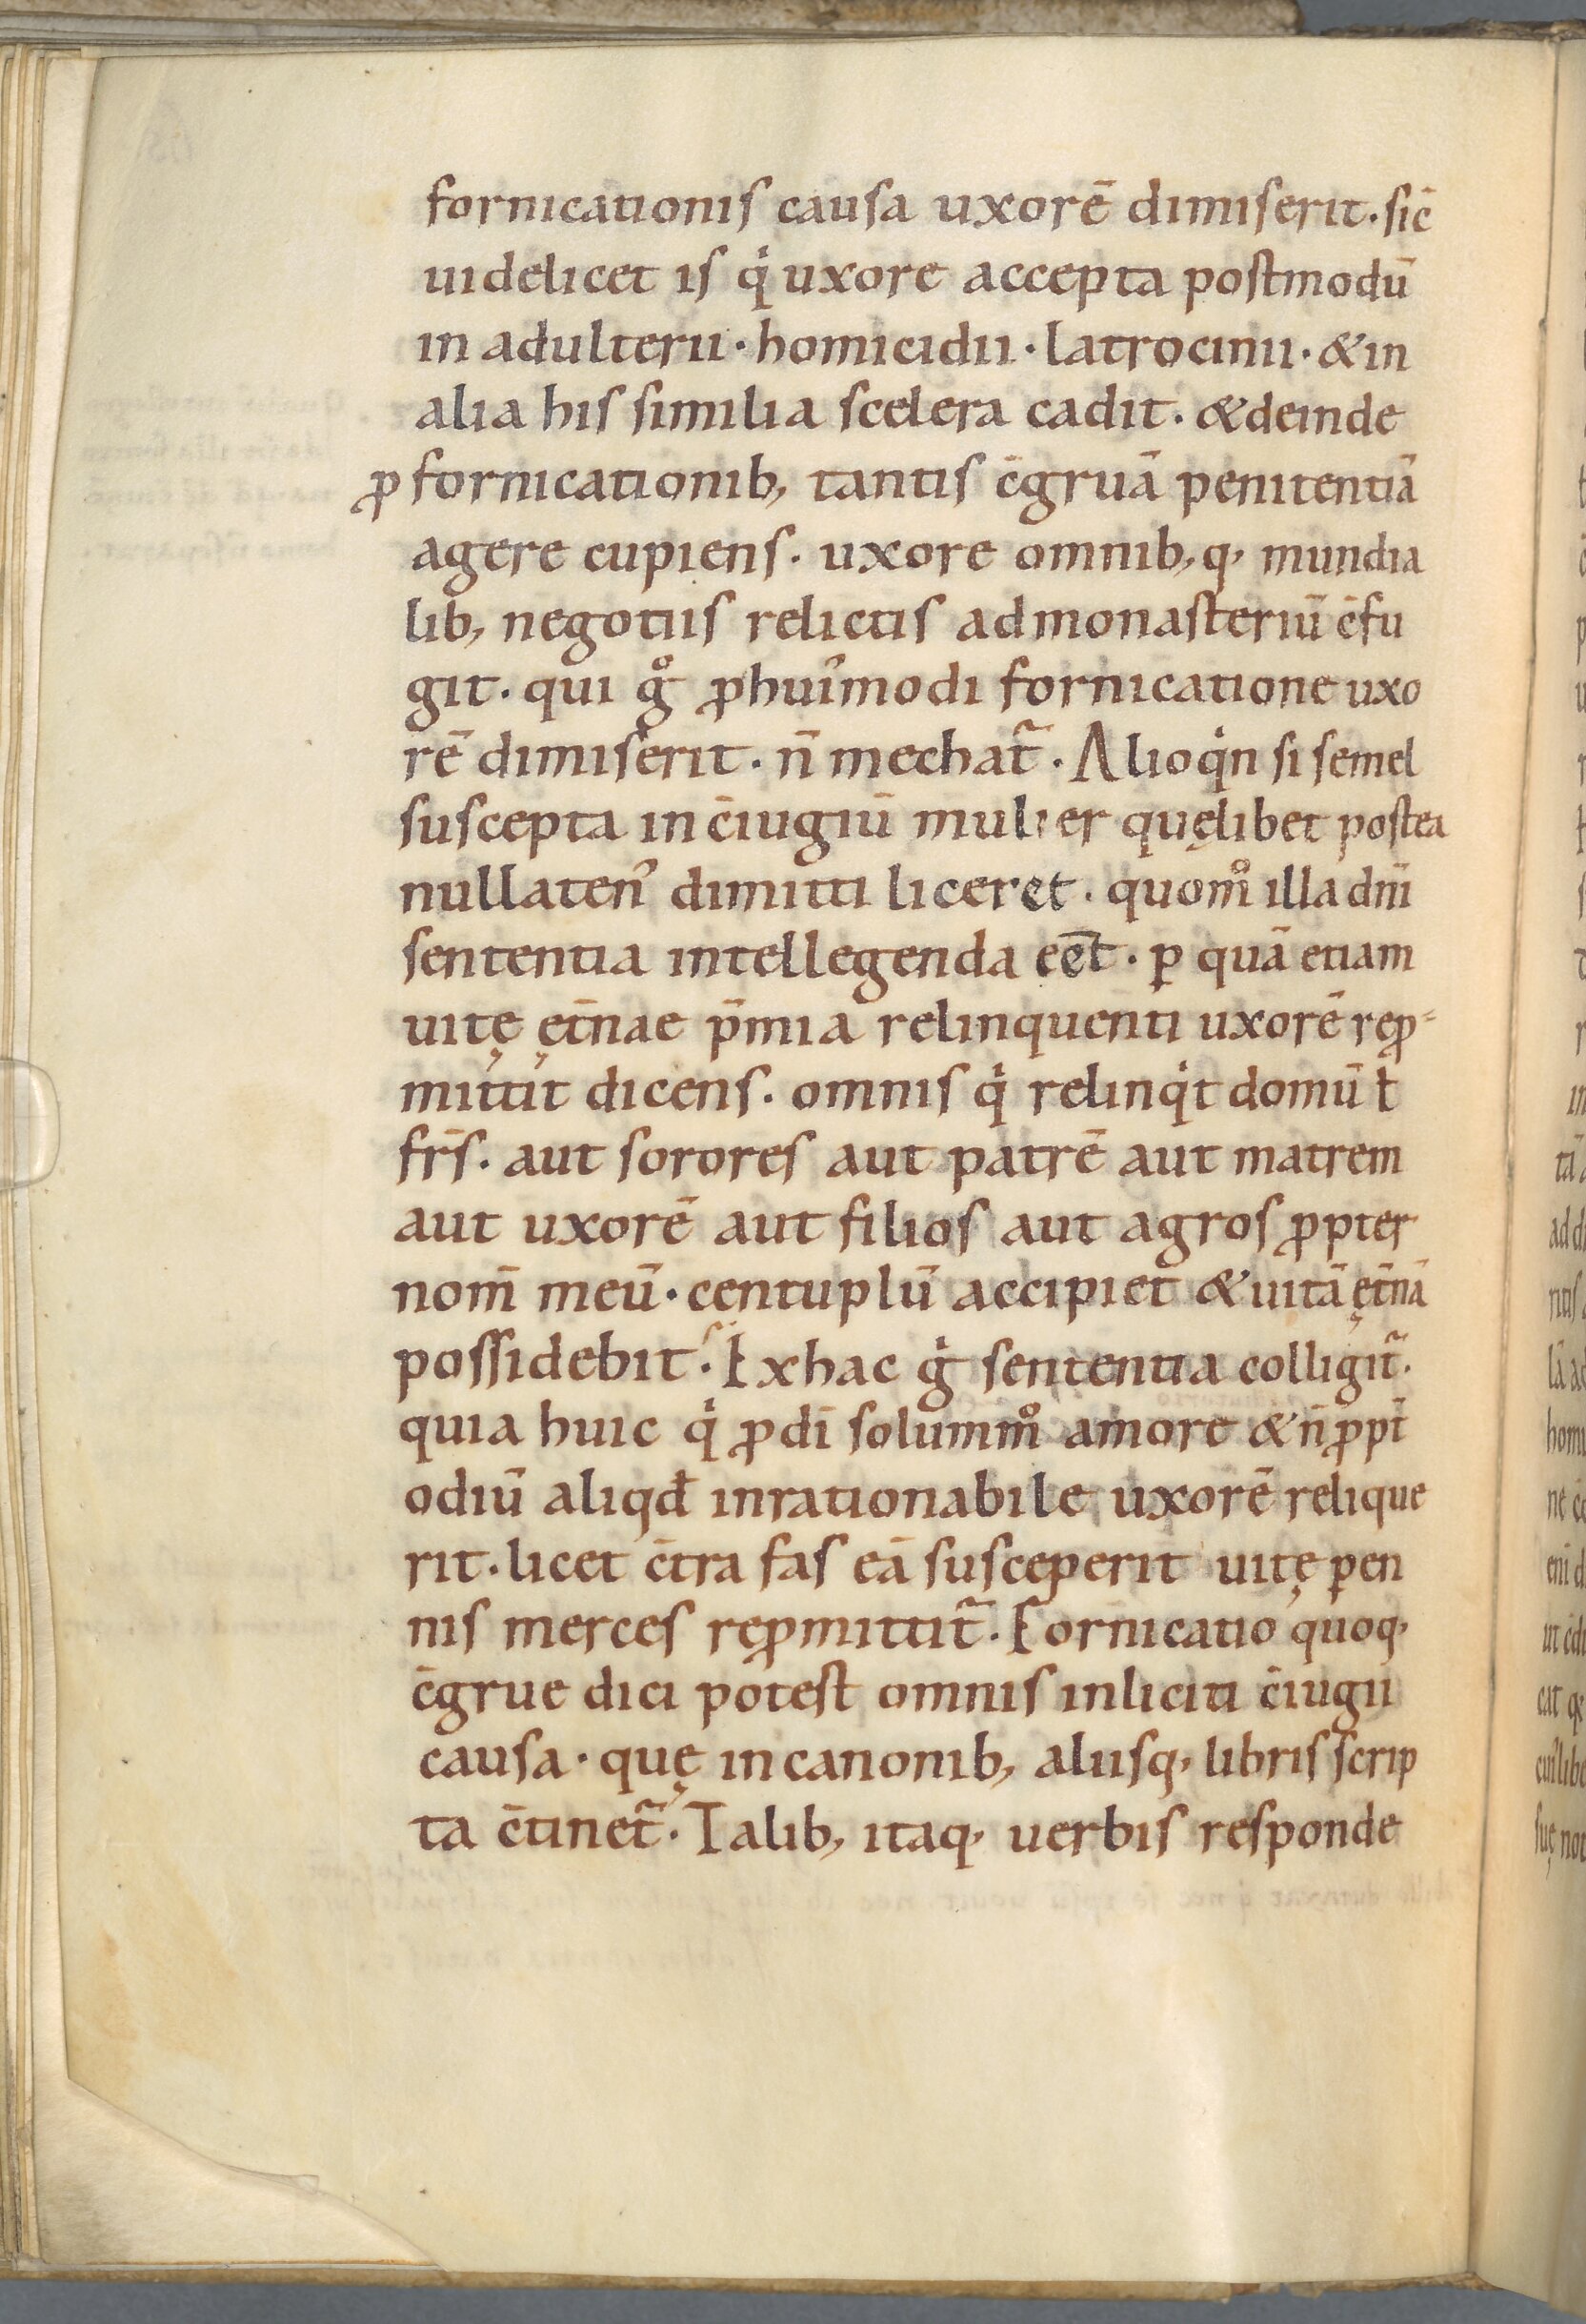 fornicationis causa uxorē dimiserit · sic̄
uidelicet is qͥ uxore accepta postmodū
in adulterii · homicidii · latrocinii · & in
alia his similia scelera cadit · & deinde
ꝓ fornicationib, tantis c̄gruā penitentiā
agere cupiens · uxore omnib, q, mundia
lib, negotiis relictis ad monasteriū c̄fu
git · qui gͦ ꝓ hui᾽modi fornicatione uxo
rē dimiserit · n̄ mechat᷑ · Alioqͥn si semel
suscepta in c̄iugiū mulier quęlibet postea
nullaten᾽ dimitti liceret · quomͦ illa dn̄i
sententia intellegenda eēt · ꝑ quā etiam
uitę ęt̄nae p̄mia relinquenti uxorē reꝓ-
mittit dicens · omnis qͥ relinqͥt domū ł
fr̄s · aut sorores aut patrē aut matrem
aut uxorē aut filios aut agros ꝓpter
nom̄ meū · centuplū accipiet & uitā ęt̄nā
possidebit · Ex hac gͥ sententia colligit᷑ ·
quia huic qͥ ꝓ dī solummͦ amore & n̄ ꝓpt̄
odiū aliqd̄ inrationabile uxorē relique
rit · licet c̄tra fas eā susceperit uitę ꝑen
nis merces reꝓmittit᷑ · Fornicatio quoq,
c̄grue dici potest omnis inliciti c̄iugii
causa · quę in canonib, aliisq, libris scrip
ta c̄tinet᷑ · Talib, itaq, uerbis responde